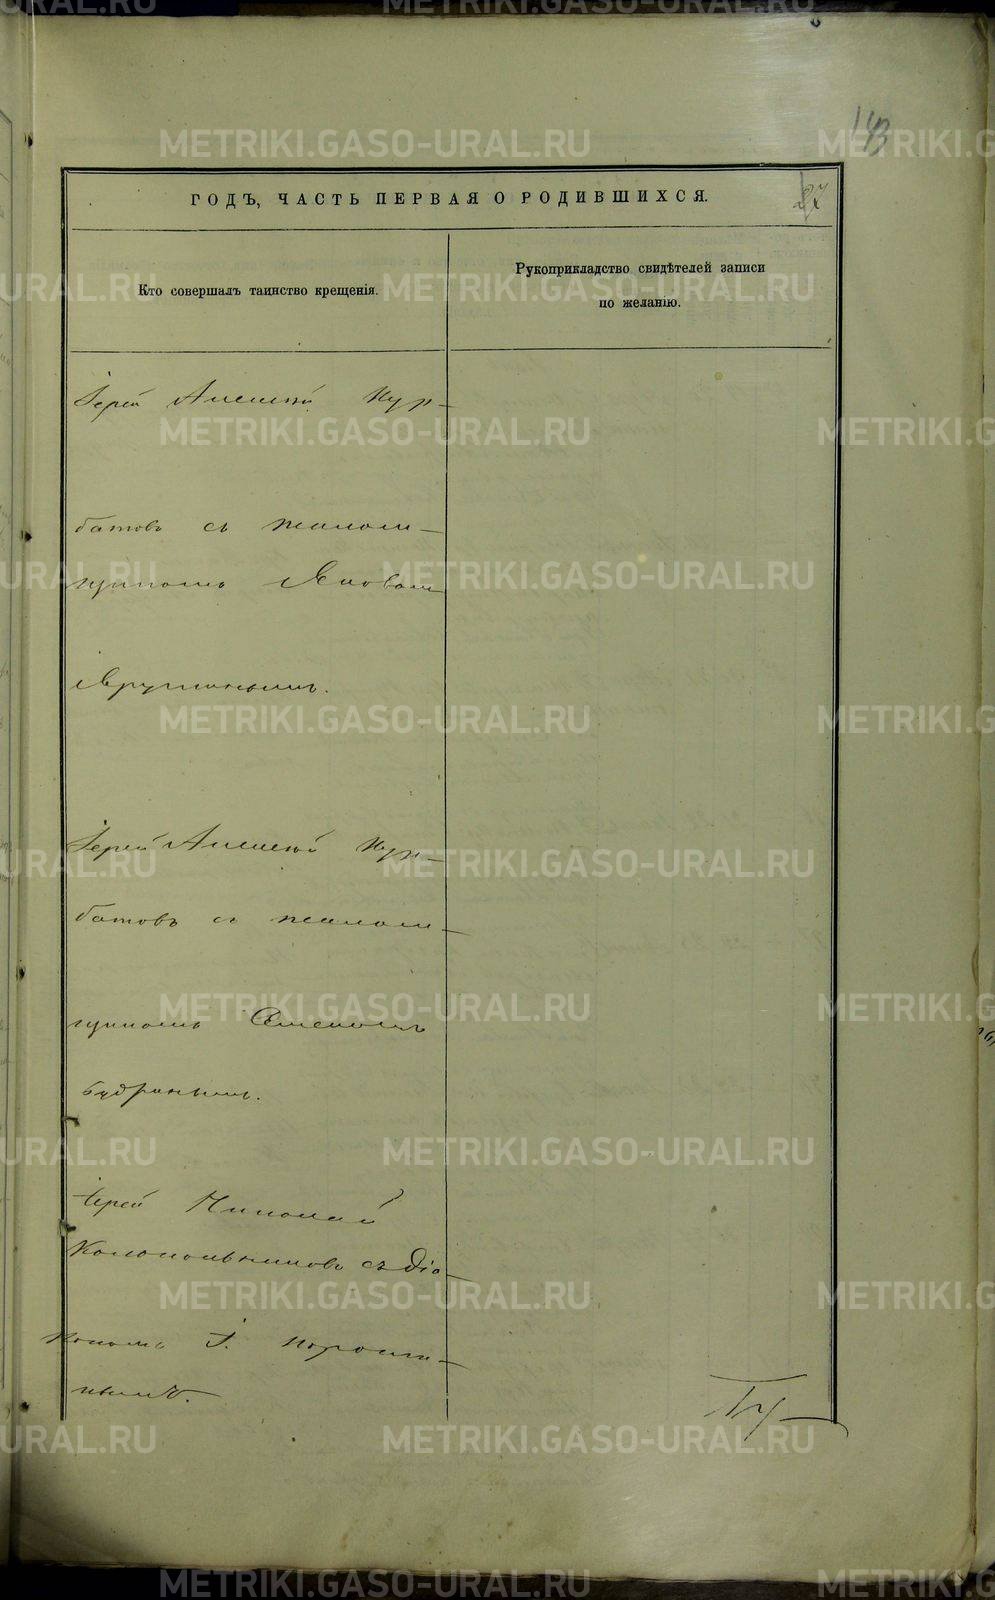 METRIKI.GASO-URAL.RU
143
ГОДЪ, ЧАСТЬ ПЕРВАЯ О РОДИВШИХСЯ.
27
Кто совершалъ таинство крещенія.
Рукоприкладство свидѣтелей записи
по желанію.
Іерей Алексѣй Кур-
батовъ съ псалом-
щикомъ Яковом
Іерей Алексѣй Кур-
батовъ съ псалом-
щикомъ Семеномъ
Будринымъ.
Іерей Николай
Колокольниковъ съ діа-
кономъ І. Порошин-
нымъ.